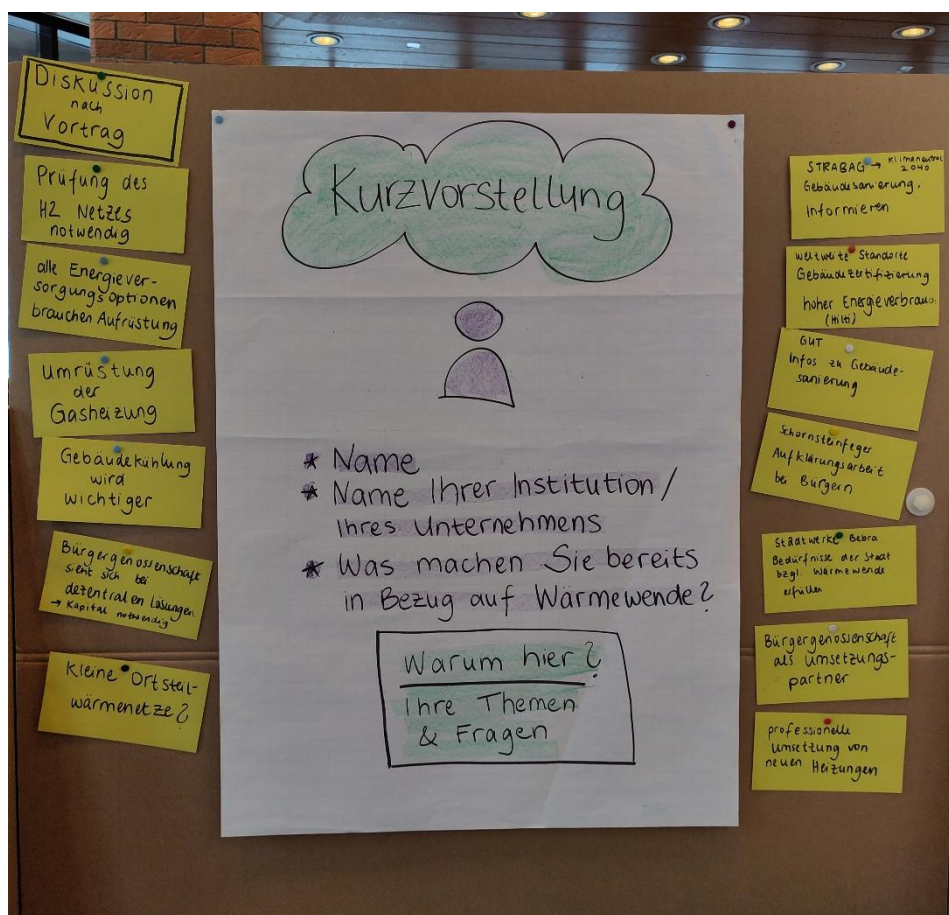 Diskussion
nach
Vortrag
Prüfung des
H2 Netzes
notwendig
alle Energiever-
sorgungsoptionen
brauchen Aufrüstung
Umrüstung
der
Gasheizung
Gebäudekühlung
wird
wichtiger
Bürgergenossenschaft
sieht sich bei
dezentralen Lösungen
→ Kapital notwendig
Kleine Ortsteil-
wärmenetze?
Kurzvorstellung
* Name
* Name Ihrer Institution /
Ihres Unternehmens
* Was machen Sie bereits
in Bezug auf Wärmewende?
Warum hier?
Ihre Themen
& Fragen
STRABAG → Klimaneutral
2040
Gebäudesanierung,
Informieren
weltweite Standorte
Gebäudezertifizierung
hoher Energieverbrauch
(Hilti)
GUT
Infos zu Gebäude-
sanierung
Schornsteinfeger
Aufklärungsarbeit
bei Bürgern
Stadtwerke Bebra
Bedürfnisse der Stadt
bzgl. Wärmewende
erfüllen
Bürgergenossenschaft
als Umsetzungs-
partner
professionelle
Umsetzung von
neuen Heizungen